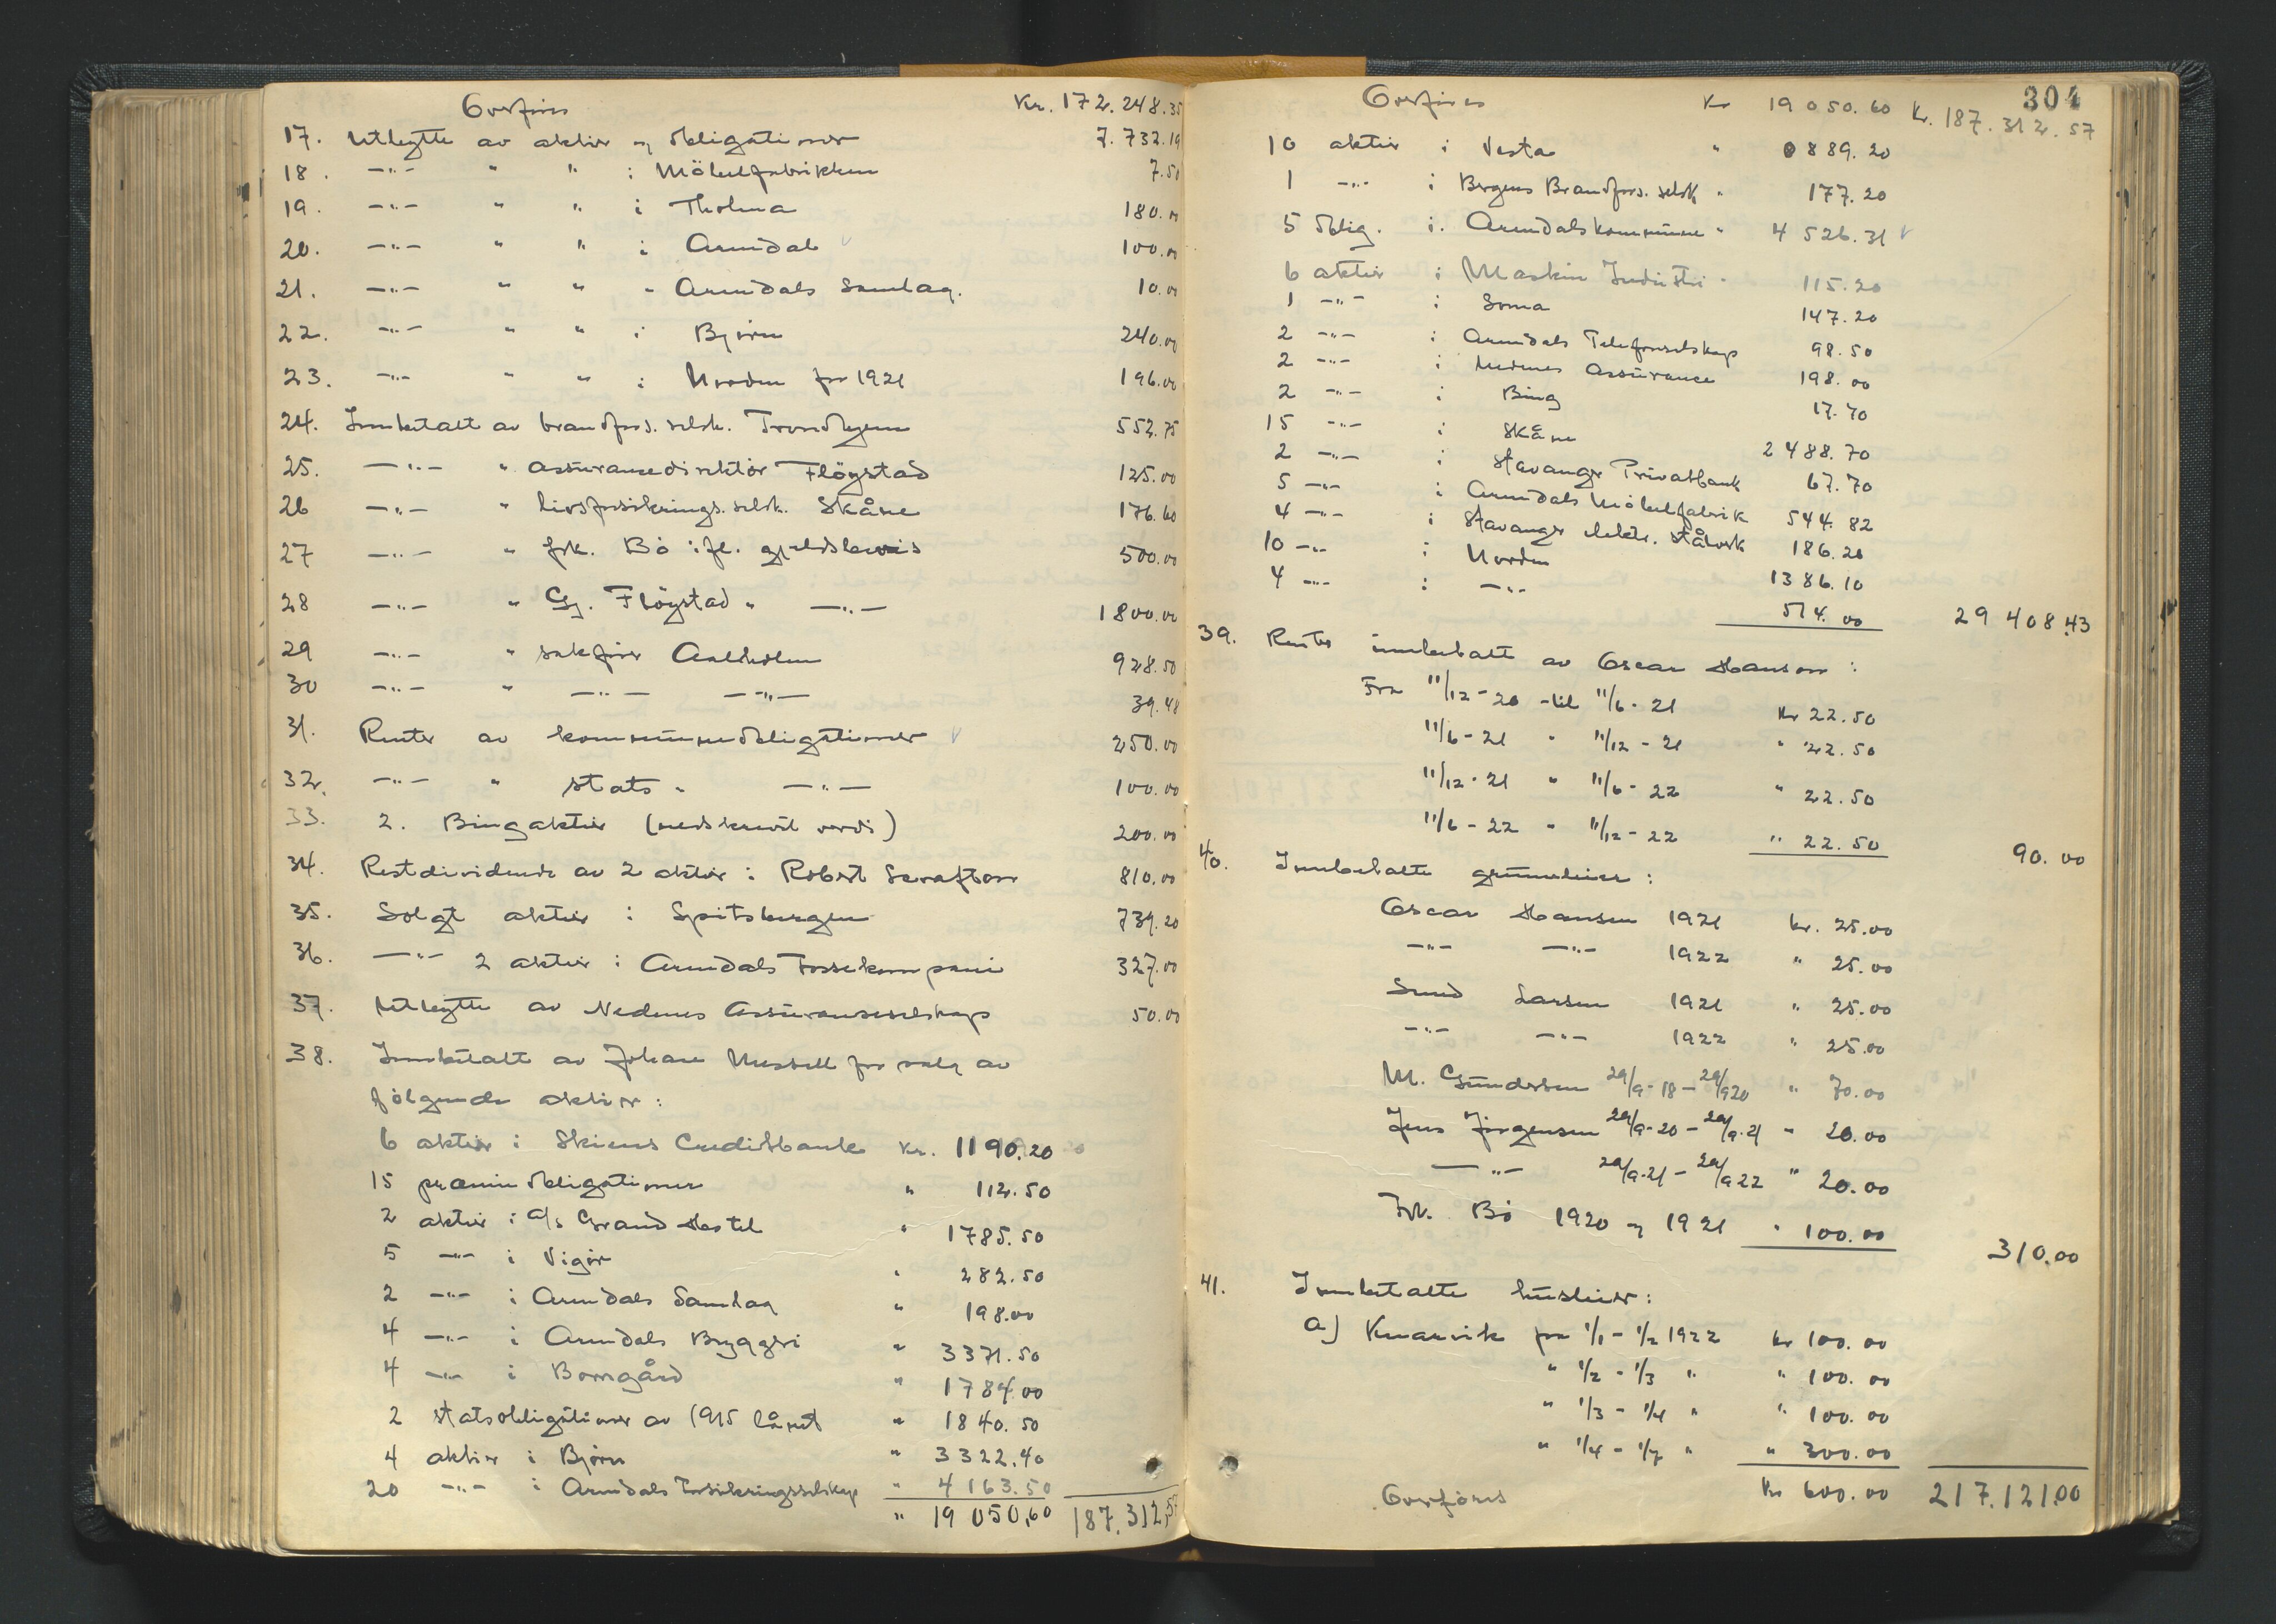 Overføres Kr. 172.248.35
17. Utbytte av aktier og obligationer 7.732.19
18. -"- " " i Möbelfabrikken 7.50
19. -"- " " i Tholma 180.00
20. -"- " " i Arendal 100.00
21. -"- " " " Arendals Samlag. 10.00
22. -"- " " i Bjørn 240.00
23. -"- " " i Norden for 1921 196.00
24. Innbetalt av brandfors. selsk. Trondhjem 552.75
25. -"- " assurancedirektör Flöystad 125.00
26 -"- " Livsforsikrings. selsk. Skåne 176.60
27 -"- " frk. Bö ifl. gjeldsbevis 500.00
28 -"- " Gj. Flöystad " -"- 1800.00
29 -"- " sakfører Aalholm 928.50
30 -"- " -"- -"- 39.48
31. Renter av kommuneobligationer 250.00
32. -"- " stats " -"- 100.00
33. 2. Bingaktier (nedskrevet verdi) 200.00
34. Restdividende av 2 aktier i Robert Scrafton 810.00
35. Solgt aktier i Spitsbergen 739.20
36. -"- 2 aktier i Arendals Fossekompani 327.00
37. Utbytte av Nedenes Assuranseselskap 50.00
38. Innbetalt av Johan Messell for salg av
følgende aktier:
6 aktier i Skiens Creditbank Kr. 1190.20
15 premieobligationer " 112.50
2 aktier i A/s Grand Hotel " 1785.50
5 -"- i Vigør " 282.50
2 -"- i Arendals Samlag " 198.00
4 -"- i Arendals Bryggeri " 3371.50
4 -"- i Borregård " 1784.00
2 statsobligationer av 1915 lånet " 1840.50
4 aktier i Bjørn " 3322.40
20 -"- i Arendals Forsikringsselskap " 4163.50
" 19 050,60 187.312,57
304
Overføres Kr 19 050.60 Kr. 187.312.57
10 aktier i Vesta " 889.20
1 -"- i Bergens Brandfors. selsk " 177.20
5 Oblig. i. Arendals kommune " 4 526.31
6 aktier i Maskin Industri " 115.20
1 -"- i Soma 147.20
2 -"- i Arendals Telefonselskap 98.50
2 -"- i Nedenes Assurance 198.00
2 -"- i Bing 17.70
15 -"- i Skåne 2488.70
2 -"- i Stavanger Privatbank 67.70
5 -"- i Arendals Möbelfabrik 544.82
4 -"- i Stavanger elektr. stålverk 186.20
10 -"- i Norden 1386.10
4 -"- i -"- 514.00 29 408.43
39. Renter innbetalt av Oscar Hanson:
Fra 11/12-20 - til 11/6-21 Kr 22.50
11/6-21 " 11/12-21 " 22.50
11/12-21 " 11/6-22 " 22.50
11/6-22 " 11/12-22 " 22.50 90.00
40. Innbetalte grunnleier:
Oscar Hansen 1921 kr. 25.00
-"- -"- 1922 " 25.00
Smed Larsen 1921 " 25.00
-"- -"- 1922 " 25.00
M. Gundersen 29/9-18-29/920 " 70.00
Jens Jörgensen 29/9-20-29/9-21 " 20.00
-"- 29/9-21-29/922 " 20.00
Frk. Bö 1920 og 1921 " 100.00 310.00
41. Innbetalte husleier:
a) Knarvik for 1/1-1/2 1922 kr 100.00
" 1/2-1/3 " " 100.00
" 1/3-1/4 " " 100.00
" 1/4-1/7 " " 300.00
Overføres Kr 600.00 217.121.00